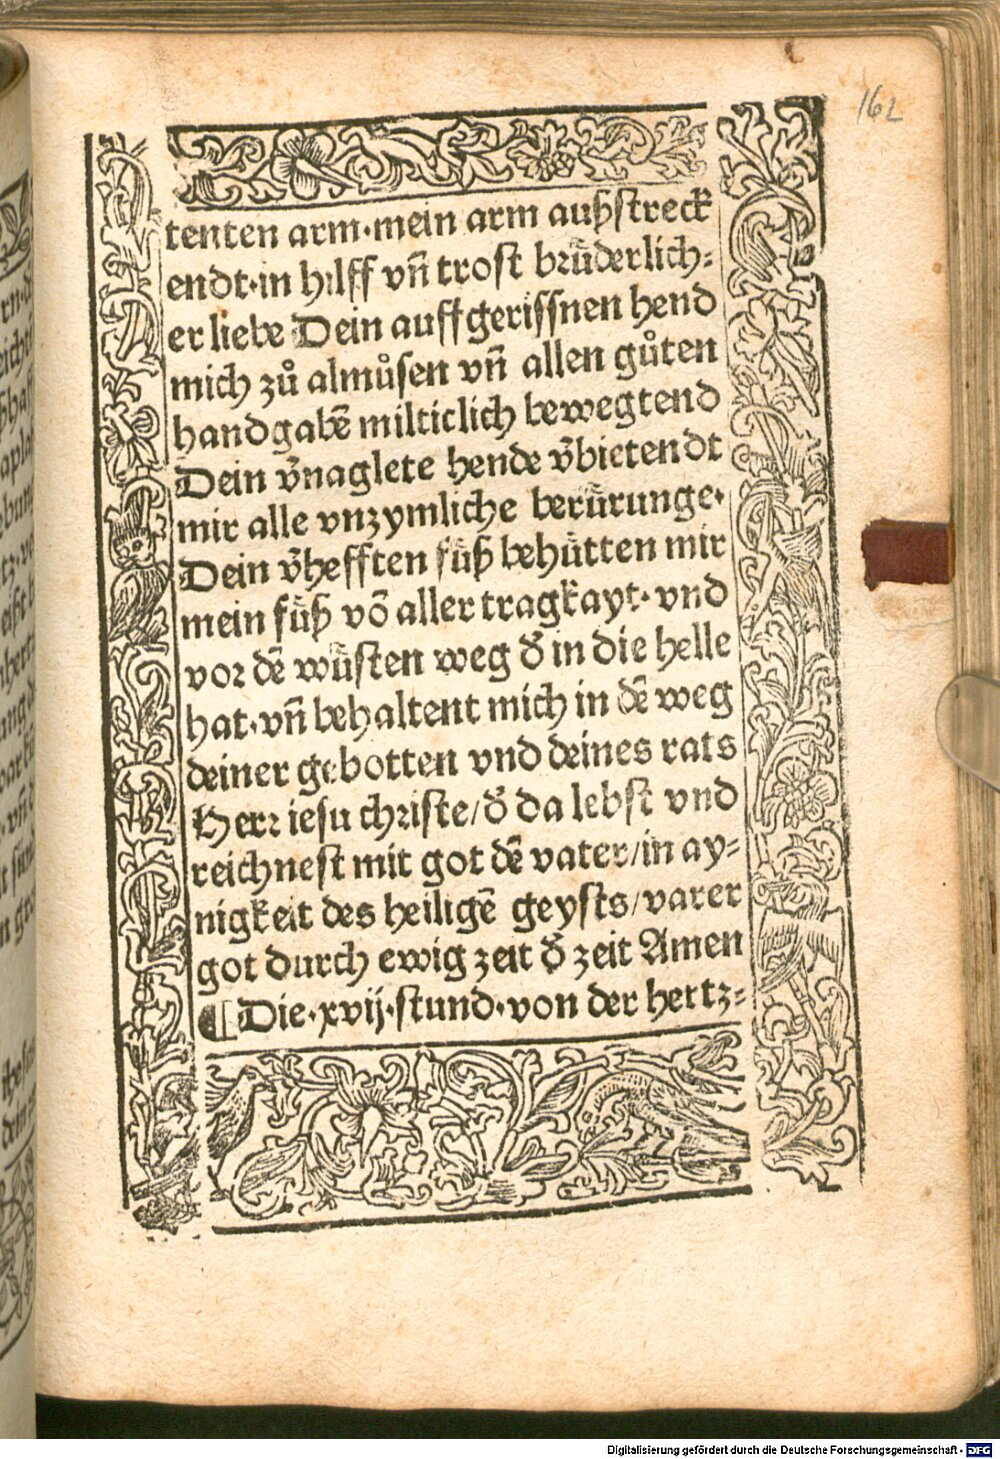 162
tenten arm·mein arm außstreck
endt·in hilff vñ trost brůderlich⸗
er liebe Dein auffgerissnen hend
mich zů almůsen vñ allen gůten
handgabē milticlich bewegtend
Dein v̄naglete hende v̄bietendt
mir alle vnzymliche berůrunge·
Dein v̄hefften fůß behůtten mir
mein fůß vō aller tragkayt· vnd
vor dē wůsten weg d̄ in die helle
hat·vñ behaltent mich in dē weg
deiner gebotten vnd deines rats
Herr iesu christe/d̄ da lebst vnd
reichnest mit got dē vater/in ay⸗
nigkeit des heiligē geysts/varer
got durch ewig zeit d̄ zeit Amen
¶Die·xvij·stund·von der hertz⸗
Digitalisierung gefördert durch die Deutsche Forschungsgemeinschaft - DFG